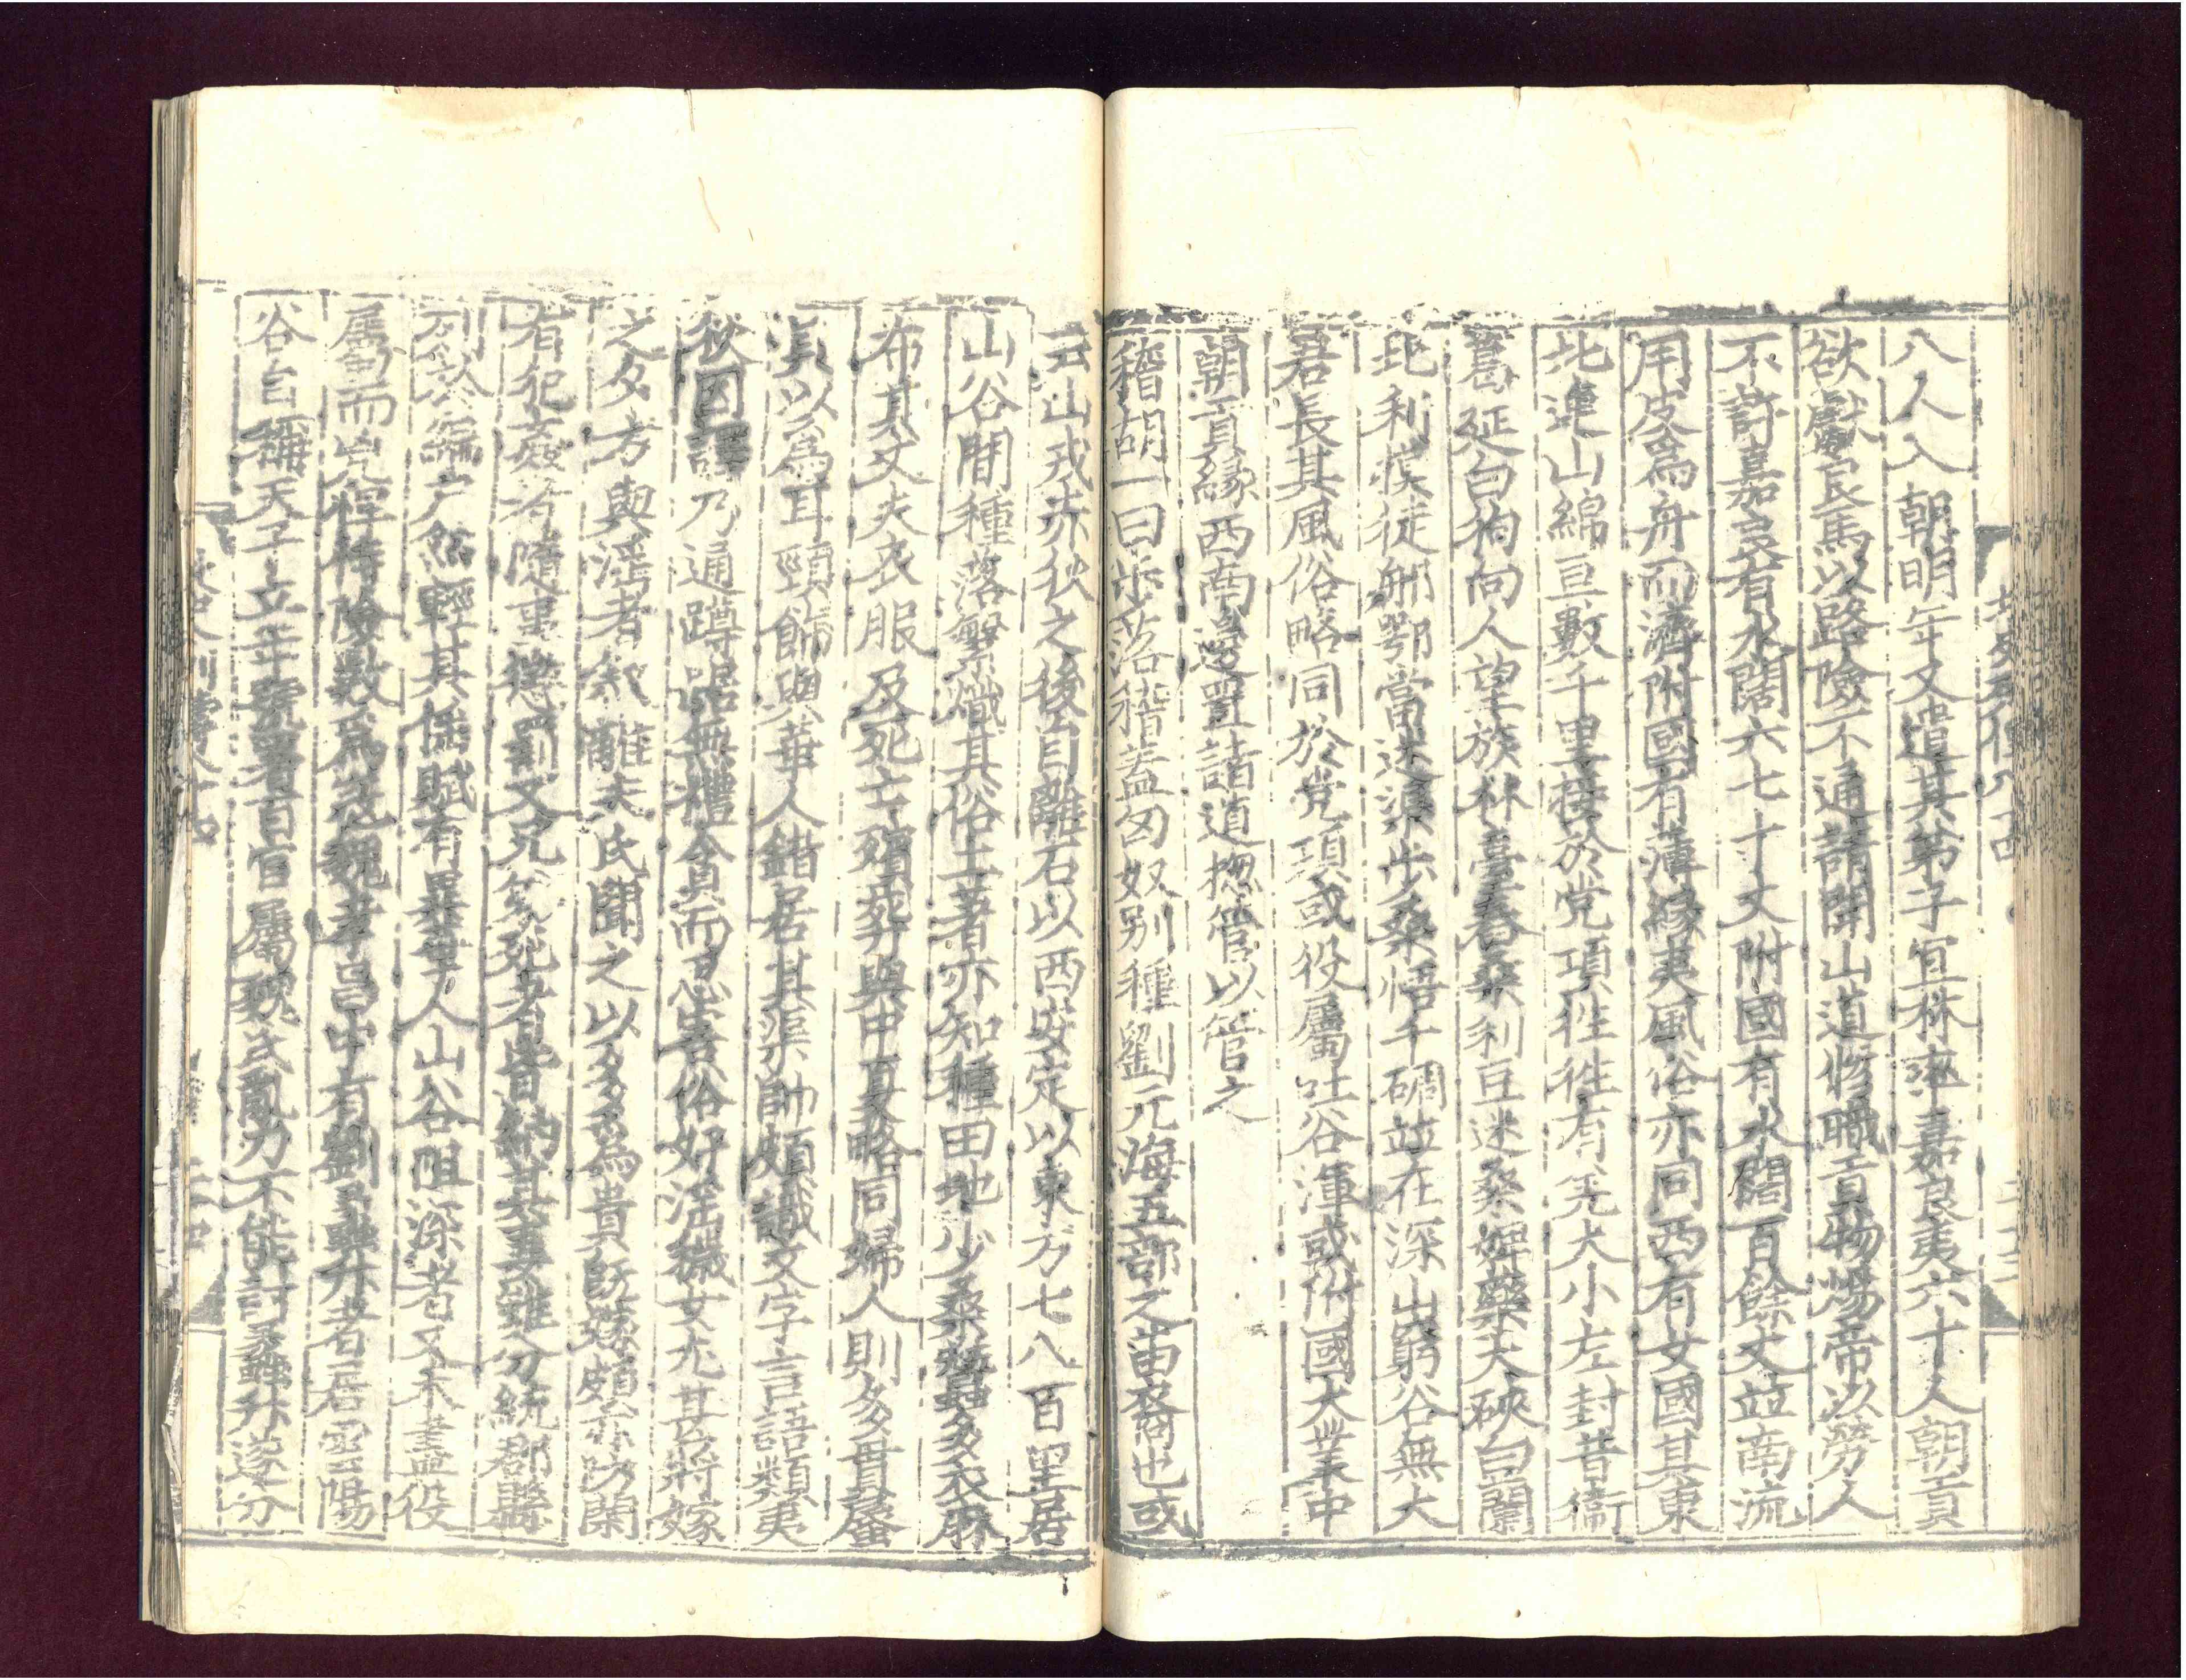 八人入朝明年又遣其弟子宜林率嘉良夷六十人朝貢
欲獻良馬以路險不通請開山道修職貢物煬帝以勞人
不許嘉良有水闊六七十丈附國有水闊百餘丈並南流
用皮爲舟而濟附國有薄緣夷風俗亦同西有女國其東
北連山綿亘數千里接於党項往往有羌大小左封昔衛
葛延白狗向人望族林臺春桑利豆迷桑婢藥大硤白蘭
北利摸徒那鄂當迷渠步桑悟千碉並在深山窮谷無大
君長其風俗略同於党項或役屬吐谷渾或附國大業中
朝貢緣西南邊置諸道揔管以管之
稽胡一曰步落稽蓋匈奴別種劉元海五部之苗裔也或
云山戎赤狄之後自離石以西安定以東方七八百里居
山谷間種落繁熾其俗土著亦知種田地少桑蠶多衣麻
布其丈夫衣服及死亡殯葬與中夏略同婦人則多貫蜃
貝以爲耳頸飾與華人錯居其渠帥頗識文字言語類夷
狄因譯乃通蹲踞無禮貪而忍害俗好淫穢女尤甚將嫁
之夕方與淫者叙離夫氏聞之以多爲貴既嫁頗亦防閑
有犯姦者隨事懲罰又兄弟死者皆納其妻雖分統郡縣
列於編户然輕其徭賦有異華人山谷阻深者又未盡役
屬而兇悍恃險數爲寇魏孝昌中有劉蠡升者居雲陽
谷自稱天子立年號署百官屬魏氏亂力不能討蠡升遂分